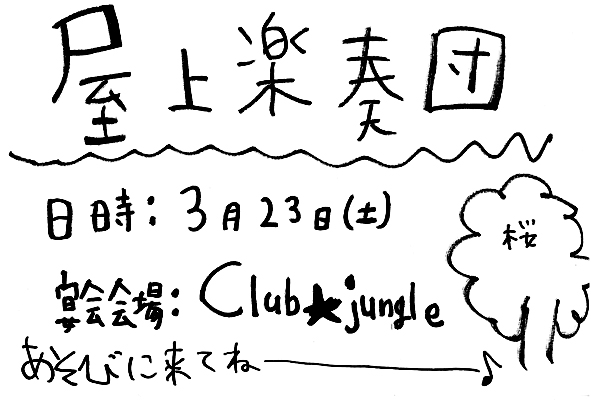 屋上楽奏団
日時：3月23日(土)
桜
宴会会場：Club★jungle
あそびに来てね──♪